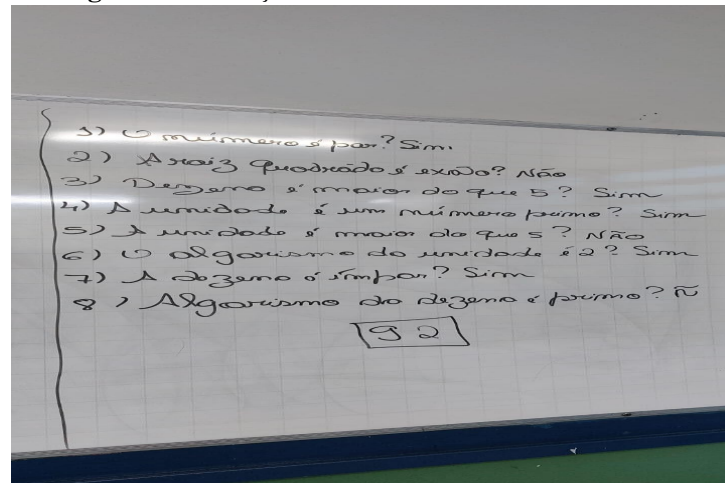 1) O número é par? Sim.
2) A raiz quadrada é exata? Não
3) Dezena é maior do que 5? Sim
4) A unidade é um número primo? Sim
5) A unidade é maior do que 5? Não
6) O algarismo da unidade é 2? Sim
7) A dezena é ímpar? Sim
8) Algarismo da dezena é primo? Ñ
92